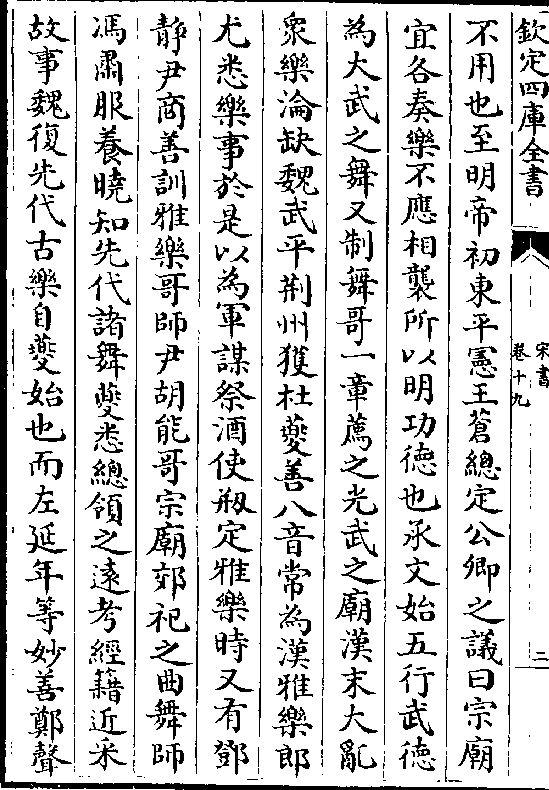 欽定四庫全書
宋書
卷十九
二
不用也至明帝初東平憲王蒼總定公卿之議曰宗廟
宜各奏樂不應相襲所以明功德也承文始五行武德
為大武之舞又制舞哥一章薦之光武之廟漢末大亂
衆樂淪缺魏武平荆州獲杜夔善八音常為漢雅樂郎
尤悉樂事於是以為軍謀祭酒使剏定雅樂時又有鄧
靜尹商善訓雅樂哥師尹胡能哥宗廟郊祀之曲舞師
馮肅服養曉知先代諸舞夔悉總領之遠考經籍近采
故事魏復先代古樂自夔始也而左延年等妙善鄭聲